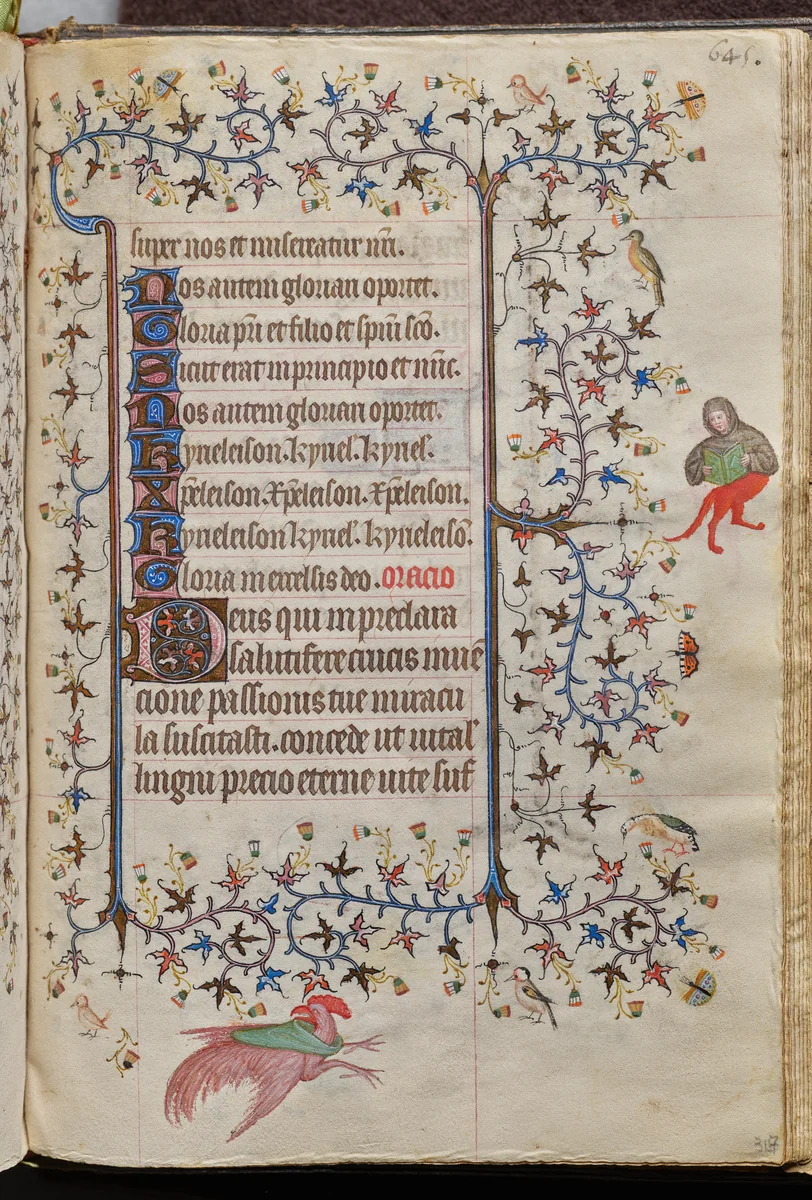 645.
super nos et misereatur nr̄i.
Nos autem gloriari oportet.
Gloria pr̄i et filio et spiri sc̄o.
Sicut erat in principio et nūc.
Nos autem gloriari oportet.
Kyrieleison. kyriel'. kyriel'.
Xp̄eleison. Xp̄eleison. Xp̄eleison.
Kyrieleison kyriel'. kyrieleisō.
Gloria in excelsis deo. oracio
Deus qui in preclara
salutifere crucis inuē
cione passionis tue miracu
la suscitasti. concede ut uital'
lingni precio eterne uite suf
317